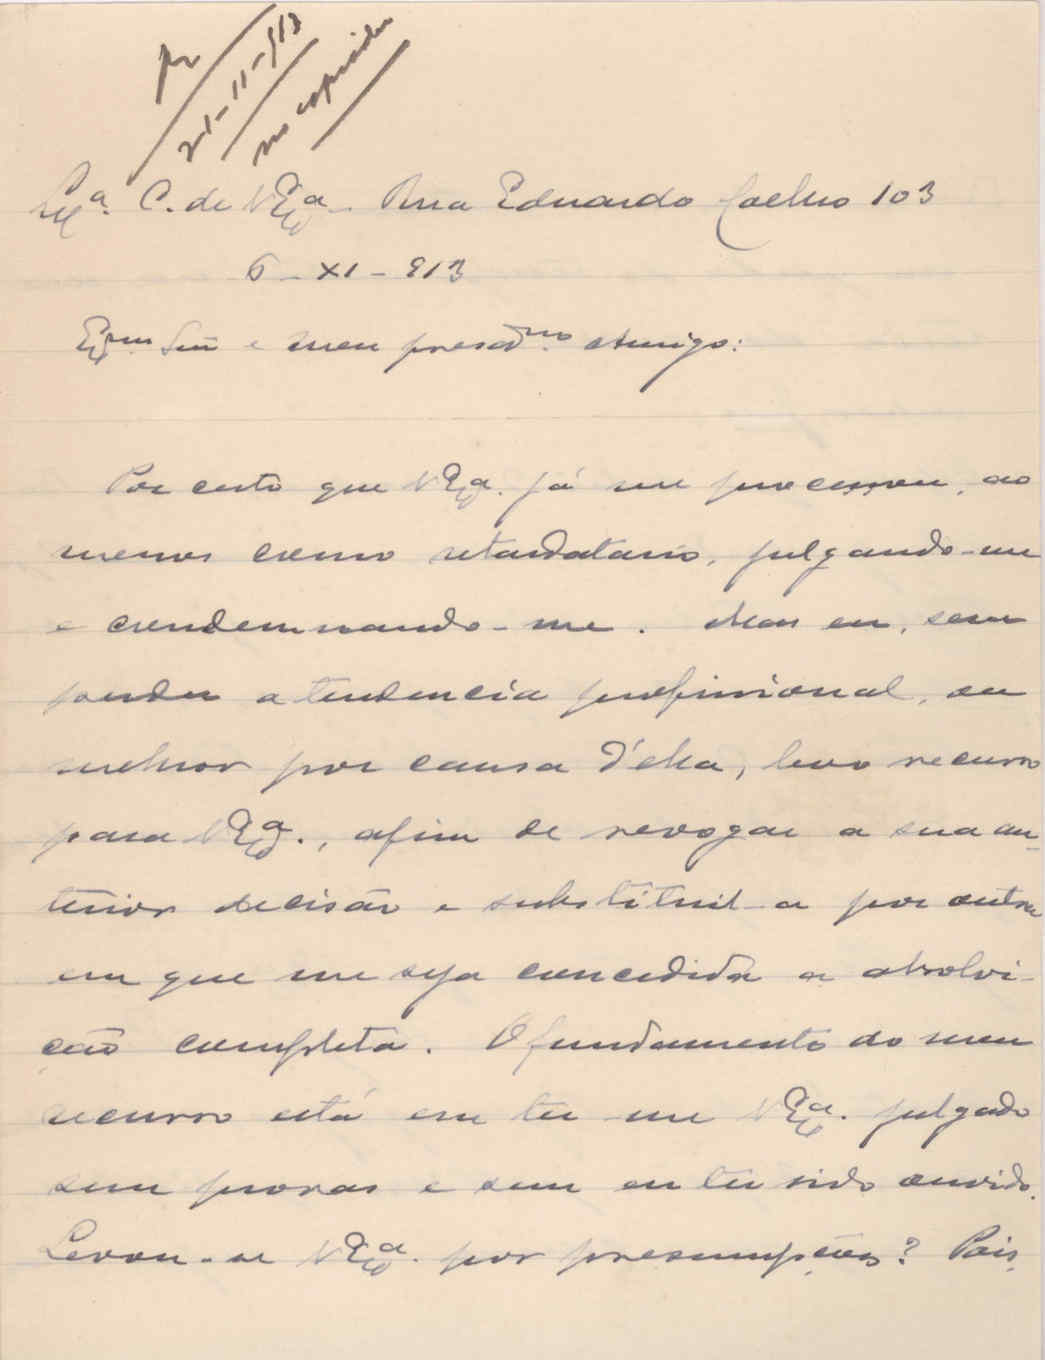 R
21-11-913
no copiador
Lxª. C. de V. Exª. Rua Eduardo Coelho 103
6-XI-913
Exmo Snr e meu presadmo. Amigo:
Por certo que V. Exª. já me processou, ao
menos como retardatario, julgando-me
e condemnando-me. Mas eu, sem
perder a tendencia profissional, ou
melhor por causa d'ella, levo recurso
para V. Exª., afim de revogar a sua an-
terior decisão e substituil-a por outra
em que me seja concedida a absolvi-
ção completa. O fundamento do meu
recurso está em ter-me V. Exª. julgado
sem provas e sem eu ter sido ouvido.
Levou-se V. Exª. por presumpções? Pois,